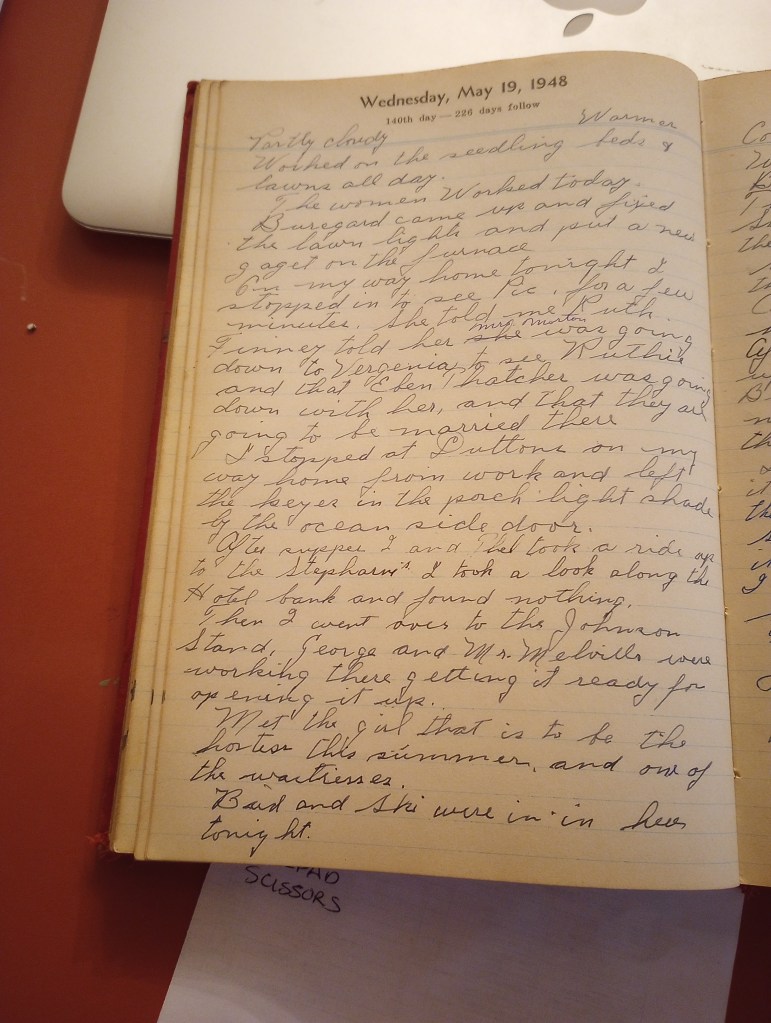 Wednesday, May 19, 1948
140th day — 226 days follow
Partly cloudy Warmer
Worked on the seedling beds &
lawns all day.
The women Worked today.
Buregard came up and fixed
the lawn lights and put a new
gaget on the furnace
On my way home tonight I
stopped in to see Pic. for a few
minutes. She told me Ruth
Finney told her she Mrs Morton was going
down to Vergenia to see Ruthie
and that Eben Thatcher was going
down with her, and that they are
going to be married there
I stopped at Duttons on my
way home from work and left
the keyes in the porch light shade
by the ocean side door.
After supper I and Phel took a ride up
to the I took a look along the
Hotel bank and found nothing.
Then I went over to the Johnson
Stand, George and Mr. Melville were
working there getting it ready for
opening it up.
Met the girl that is to be the
hostess this summer, and one of
the waitresses.
Bud and Ski were in in here
tonight.
PAD
SCISSORS